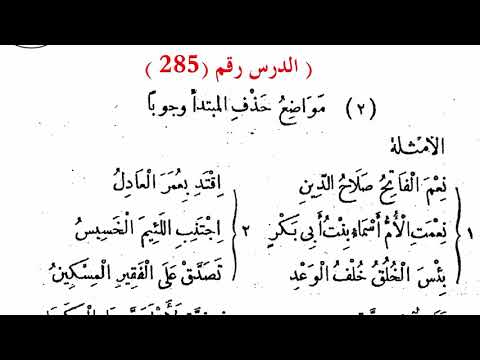 ( الدرس رقم (285 )
(٢) مَوَاضِعُ حَذْفِ المُبْتَدَأ وجوبًا
الأمثلة
نِعْمَ الْفَاتِحُ صَلَاحُ الدِّينِ اِقْتَدِ بِعُمَرَ الْعَادِلُ
١ نِعْمَتِ الْأُمُّ أَسْمَاءُ بِنْتُ أَبِى بَكْرٍ ٢ اِجْتَنِبِ اللَّئِيمَ الْخَسِيسُ
بِئْسَ الْخُلُقُ خُلْفُ الْوَعْدِ تَصَدَّقْ عَلَى الْفَقِيرِ الْمِسْكِينُ